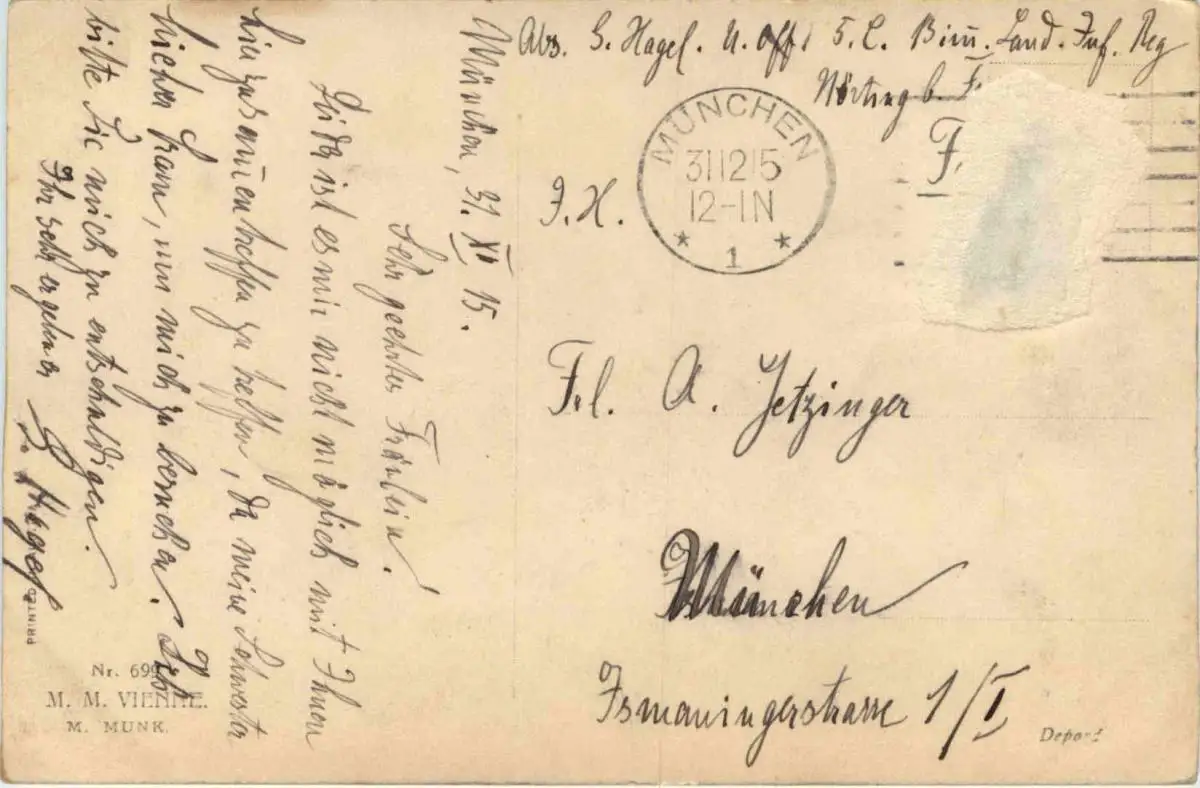 Abs. G. Hagel. U. Off. 5. C. Land. Inf. Reg
F.
MÜNCHEN
31 12 15
12-1N
1
Frl. A. Jetzinger
München
Ismaningerstrasse 1/I
München, 31. XII 15.
Sehr geehrtes Fräulein!
Leider ist es mir nicht möglich mit Ihnen
zusammentreffen zu, da meine Schwester
hieher kam, um mich zu besuchen. Ich
bitte Sie mich zu entschuldigen.
Ihr sehr ergebener
G. Hagel
PRINTED
Nr. 699
M. M. VIENNE.
M. MUNK.
Deposé